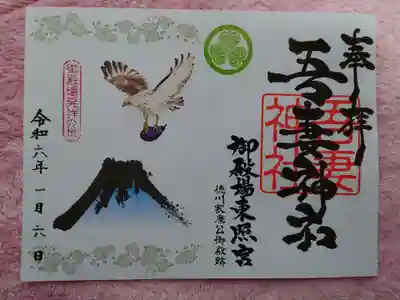 奉拝
吾妻神社
吾妻
神社
御殿場東照宮
徳川家康公御殿跡
御殿場発祥の地
令和六年一月六日